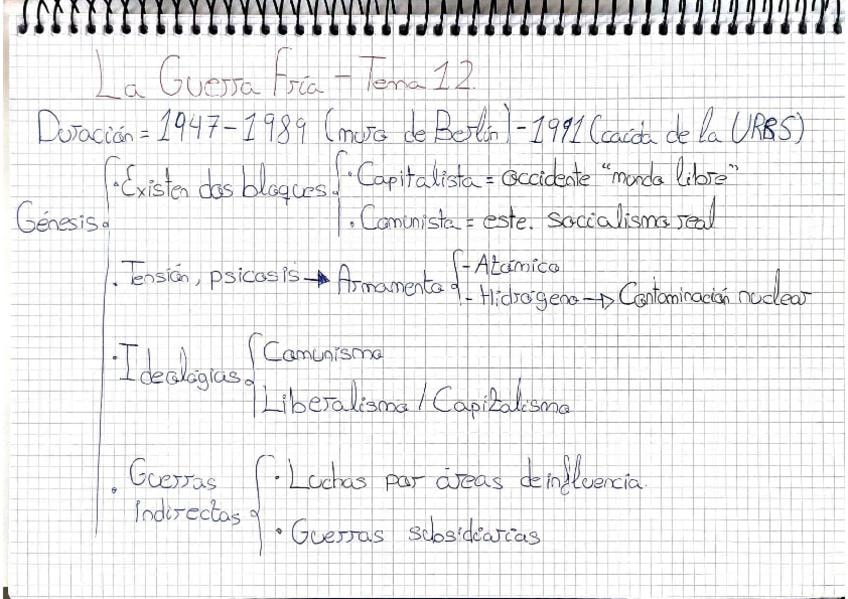 La Guerra Fría - Tema 12.
Duración = 1947 - 1989 (muro de Berlín) - 1991 (caída de la URSS)
Génesis
· Existen dos bloques
· Capitalista = occidente "mundo libre"
· Comunista = este. socialismo real
· Tensión, psicosis → Armamento
- Atómico
- Hidrógeno → Contaminación nuclear
· Ideologías
Comunismo
Liberalismo / Capitalismo
· Guerras
Indirectas
· Luchas por áreas de influencia.
· Guerras subsidiarias